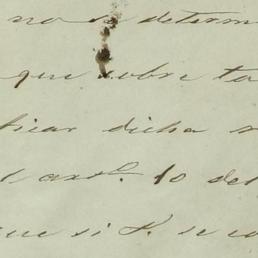 no se determ
que sobre ta
ticar dicha
el artº. 10 del
que si S. se co